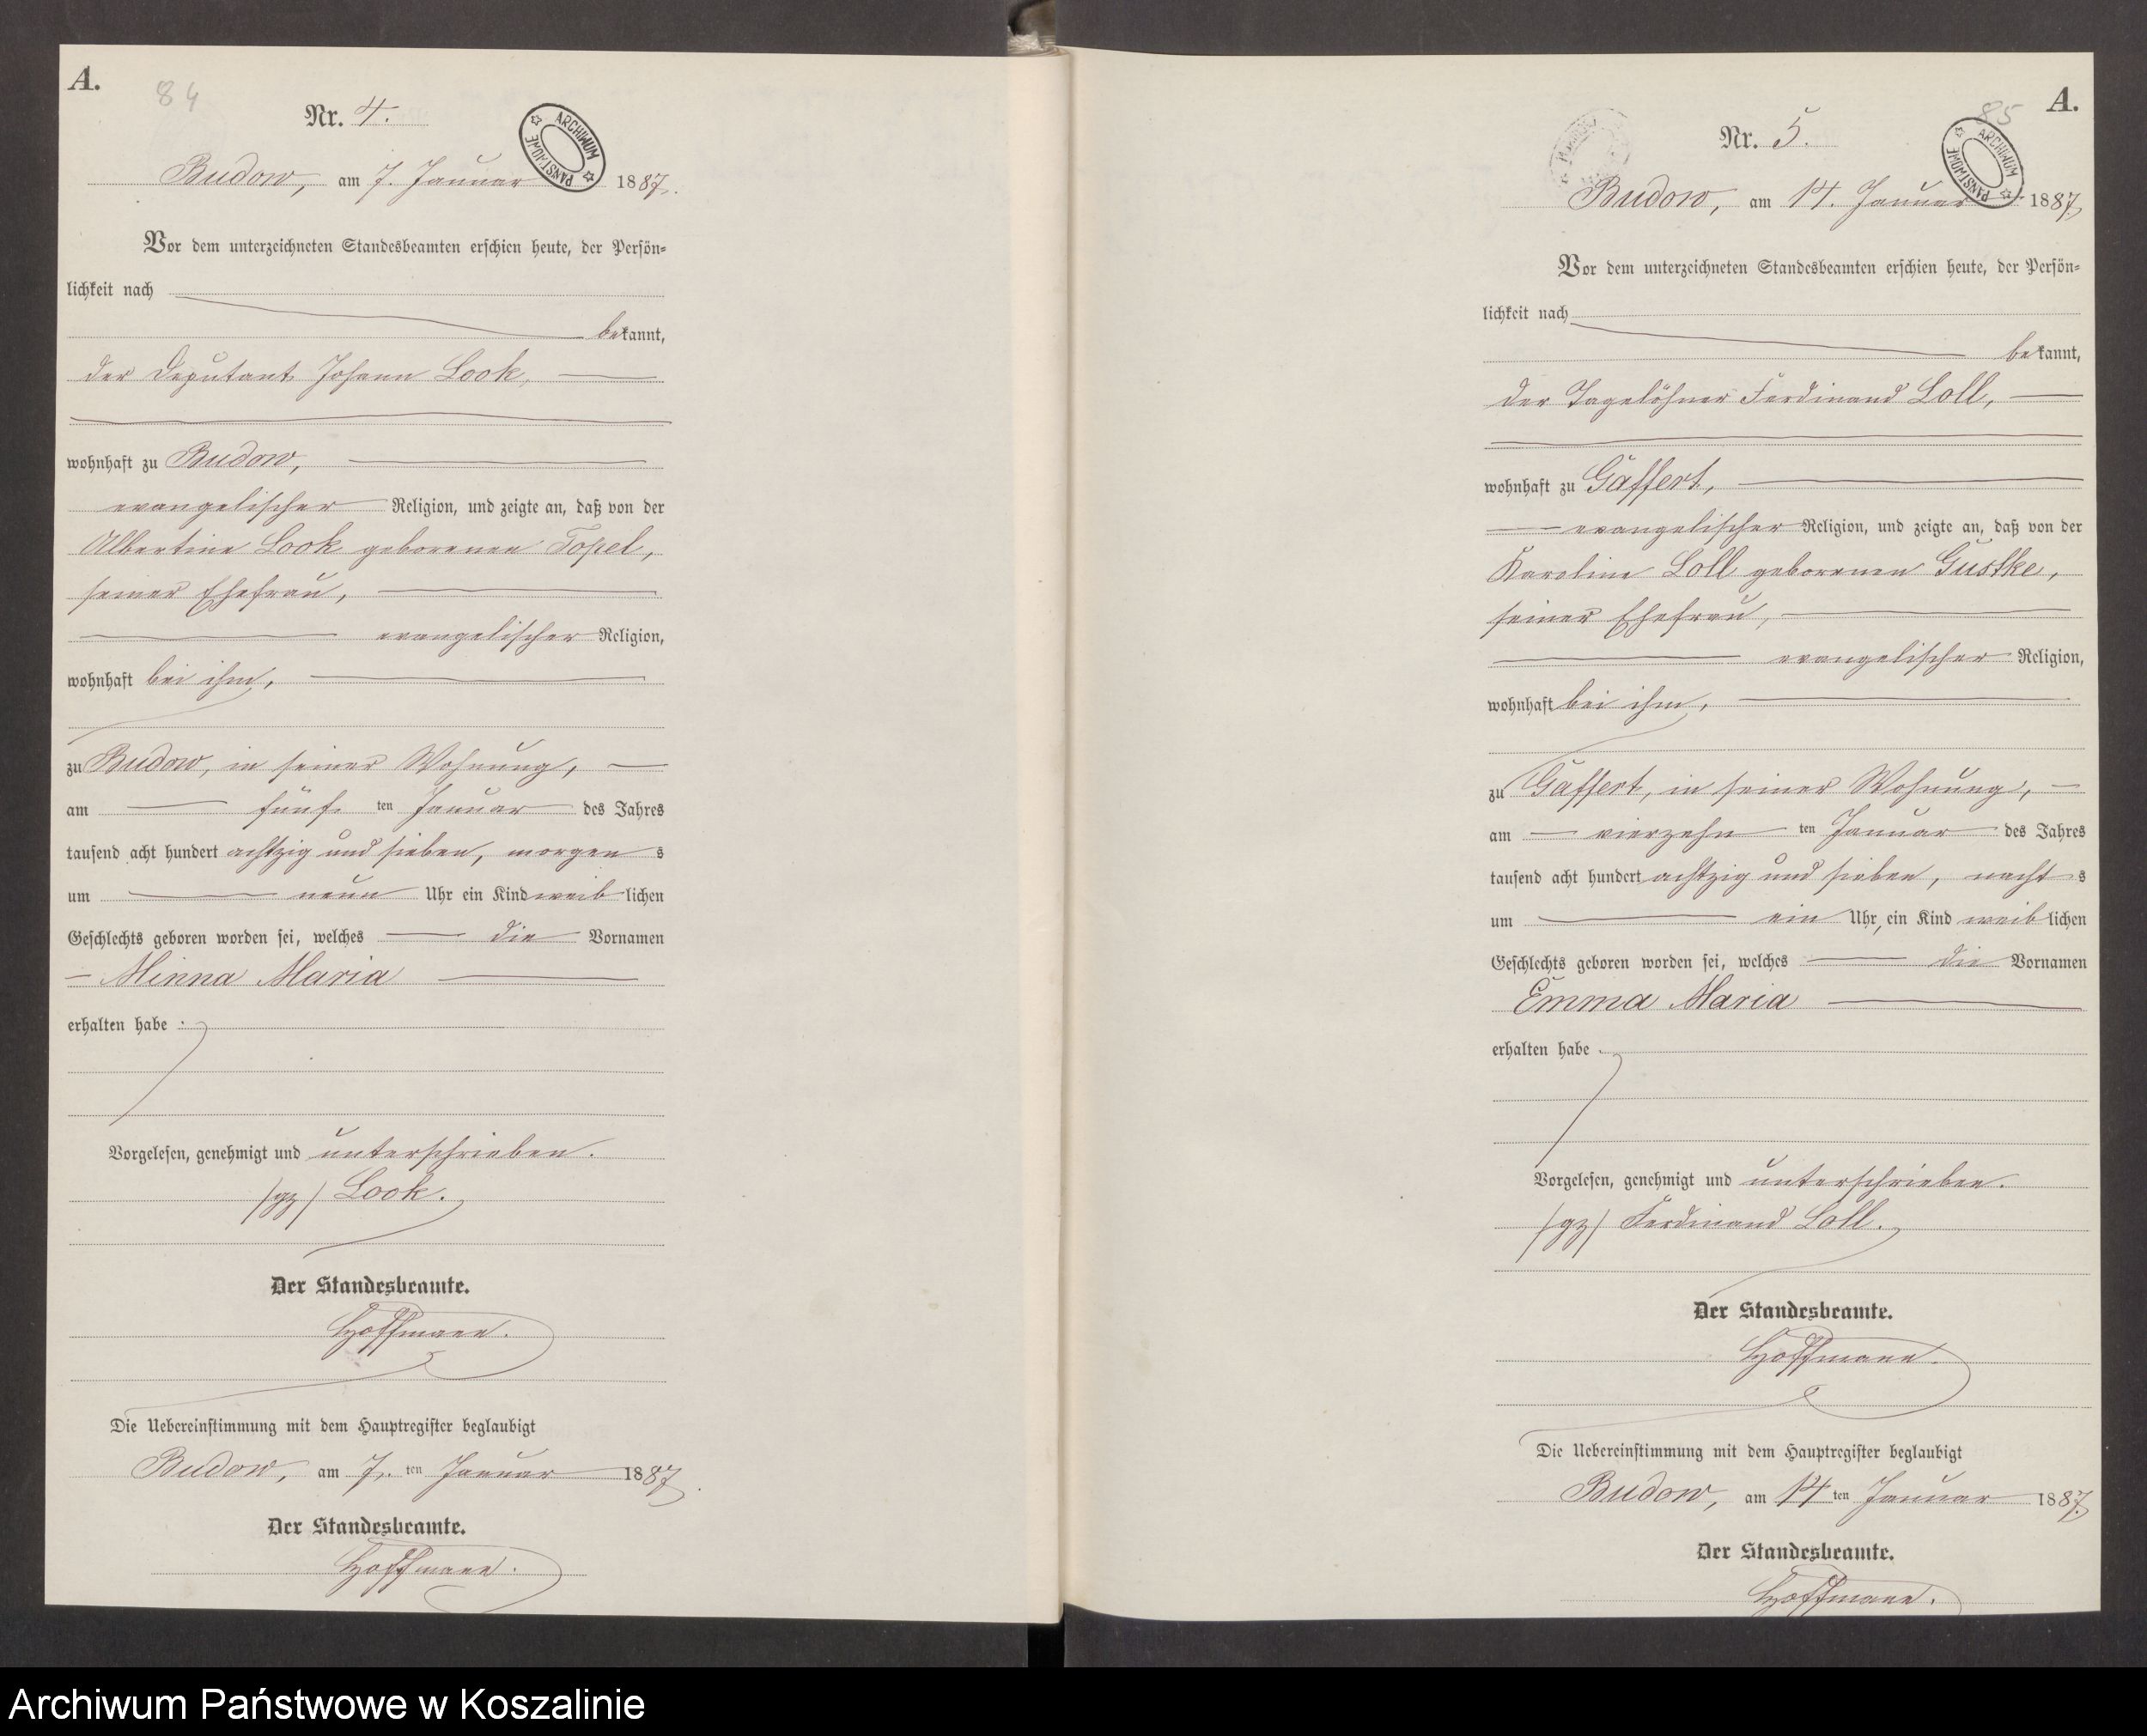 A.
84
Nr. 4.
ARCHIWUM PAŃSTWOWE
Budow, am 7. Januar 1887.
Vor dem unterzeichneten Standesbeamten erschien heute, der Persön-
lichkeit nach
bekannt,
der Deputant Johann Look,
wohnhaft zu Budow,
evangelischer Religion, und zeigte an, daß von der
Albertine Look geborenen Topel,
seiner Ehefrau,
evangelischer Religion,
wohnhaft bei ihm,
zu Budow, in seiner Wohnung,
am fünf ten Januar des Jahres
tausend acht hundert achtzig und sieben, morgens
um neun Uhr ein Kind weiblichen
Geschlechts geboren worden sei, welches die Vornamen
Minna Maria
erhalten habe.
Vorgelesen, genehmigt und unterschrieben.
/gz/ Look.
Der Standesbeamte.
Hoffmann.
Die Uebereinstimmung mit dem Hauptregister beglaubigt
Budow, am 7. ten Januar 1887.
Der Standesbeamte.
Hoffmann.
A.
85
Nr. 5.
ARCHIWUM PAŃSTWOWE
Budow, am 14. Januar 1887.
Vor dem unterzeichneten Standesbeamten erschien heute, der Persön-
lichkeit nach
bekannt,
der Tagelöhner Ferdinand Loll,
wohnhaft zu Gaffert,
evangelischer Religion, und zeigte an, daß von der
Karoline Loll geborenen Gustke,
seiner Ehefrau,
evangelischer Religion,
wohnhaft bei ihm,
zu Gaffert, in seiner Wohnung,
am vierzehn ten Januar des Jahres
tausend acht hundert achtzig und sieben, nachts
um ein Uhr, ein Kind weiblichen
Geschlechts geboren worden sei, welches die Vornamen
Emma Maria
erhalten habe.
Vorgelesen, genehmigt und unterschrieben.
/gz/ Ferdinand Loll.
Der Standesbeamte.
Hoffmann.
Die Uebereinstimmung mit dem Hauptregister beglaubigt
Budow, am 14 ten Januar 1887.
Der Standesbeamte.
Hoffmann.
Archiwum Państwowe w Koszalinie